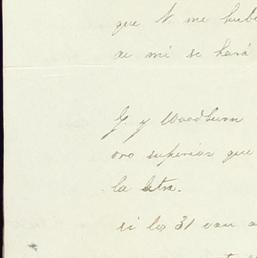 que N. me hube
de mi se hará
G. y Woodburn
oro superior que
la letra.
si los 31 van a